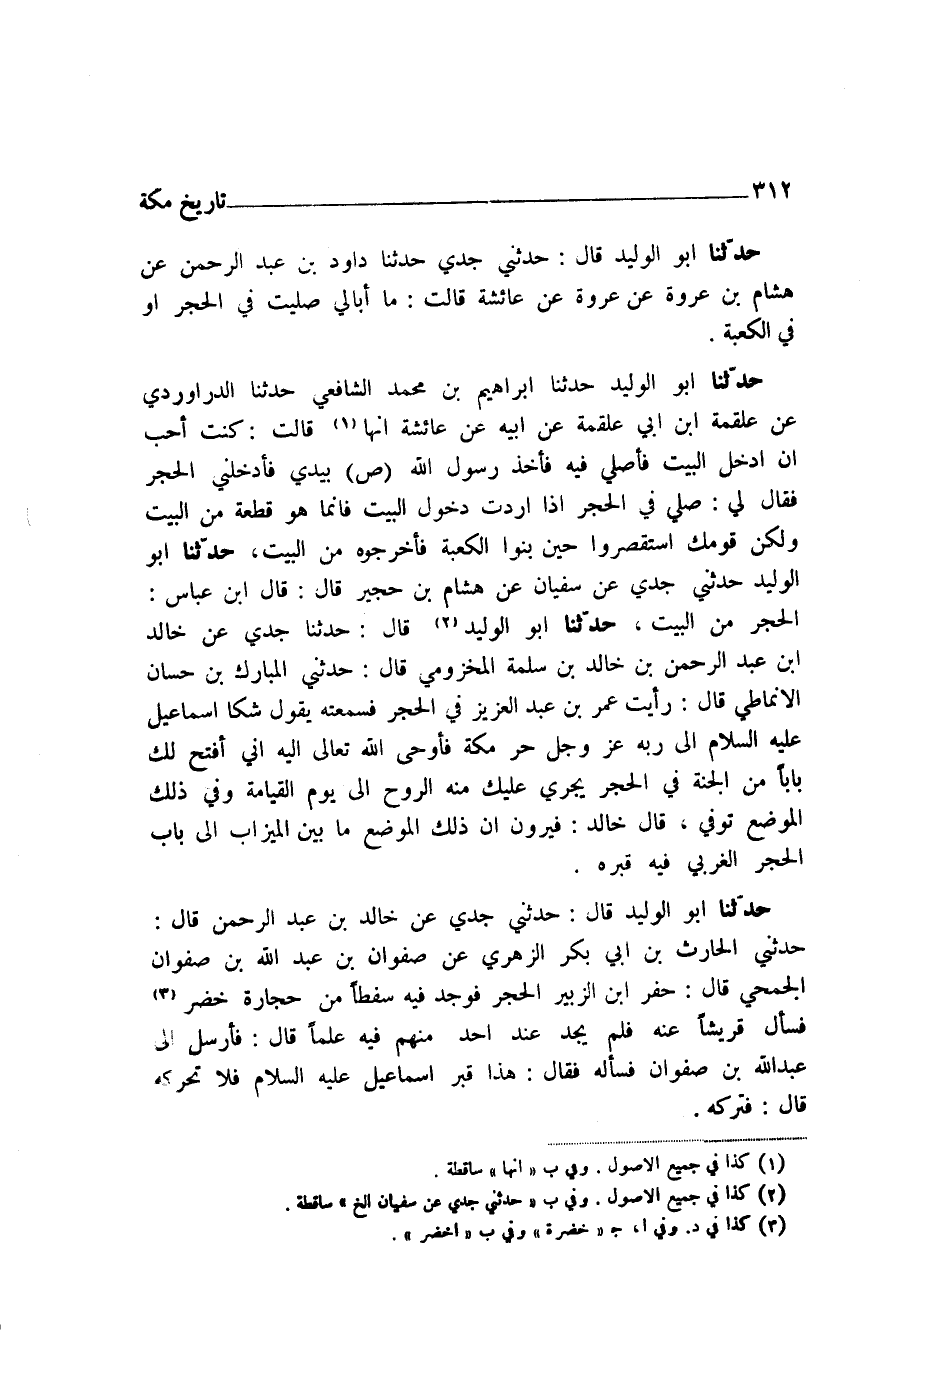 ٣١٢ تاريخ مكة
حدّثنا ابو الوليد قال : حدثني جدي حدثنا داود بن عبد الرحمن عن
هشام بن عروة عن عروة عن عائشة قالت : ما أبالي صليت في الحجر او
في الكعبة .
حدّثنا ابو الوليد حدثنا ابراهيم بن محمد الشافعي حدثنا الدراوردي
عن علقمة ابن ابي علقمة عن ابيه عن عائشة انها (١) قالت : كنت أحب
ان ادخل البيت فأصلي فيه فأخذ رسول الله (ص) بيدي فأدخلني الحجر
فقال لي : صلي في الحجر اذا اردت دخول البيت فانما هو قطعة من البيت
ولكن قومك استقصروا حين بنوا الكعبة فأخرجوه من البيت ، حدّثنا ابو
الوليد حدثني جدي عن سفيان عن هشام بن حجير قال : قال ابن عباس :
الحجر من البيت ، حدّثنا ابو الوليد (٢) قال : حدثنا جدي عن خالد
ابن عبد الرحمن بن خالد بن سلمة المخزومي قال : حدثني المبارك بن حسان
الانماطي قال : رأيت عمر بن عبد العزيز في الحجر فسمعته يقول شكا اسماعيل
عليه السلام الى ربه عز وجل حر مكة فأوحى الله تعالى اليه اني أفتح لك
باباً من الجنة في الحجر يجري عليك منه الروح الى يوم القيامة وفي ذلك
الموضع توفي ، قال خالد : فيرون ان ذلك الموضع ما بين الميزاب الى باب
الحجر الغربي فيه قبره .
حدّثنا ابو الوليد قال : حدثني جدي عن خالد بن عبد الرحمن قال :
حدثني الحارث بن ابي بكر الزهري عن صفوان بن عبد الله بن صفوان
الجمحي قال : حفر ابن الزبير الحجر فوجد فيه سفطاً من حجارة خضر (٣)
فسأل قريشاً عنه فلم يجد عند احد منهم فيه علماً قال : فأرسل الى
عبدالله بن صفوان فسأله فقال : هذا قبر اسماعيل عليه السلام فلا تحركه
قال : فتركه .
(١) كذا في جميع الاصول . وفي ب « انها » ساقطة .
(٢) كذا في جميع الاصول . وفي ب « حدثني جدي عن سفيان الخ » ساقطة .
(٣) كذا في د. وفي ا، جـ « خضرة » وفي ب « اخضر » .